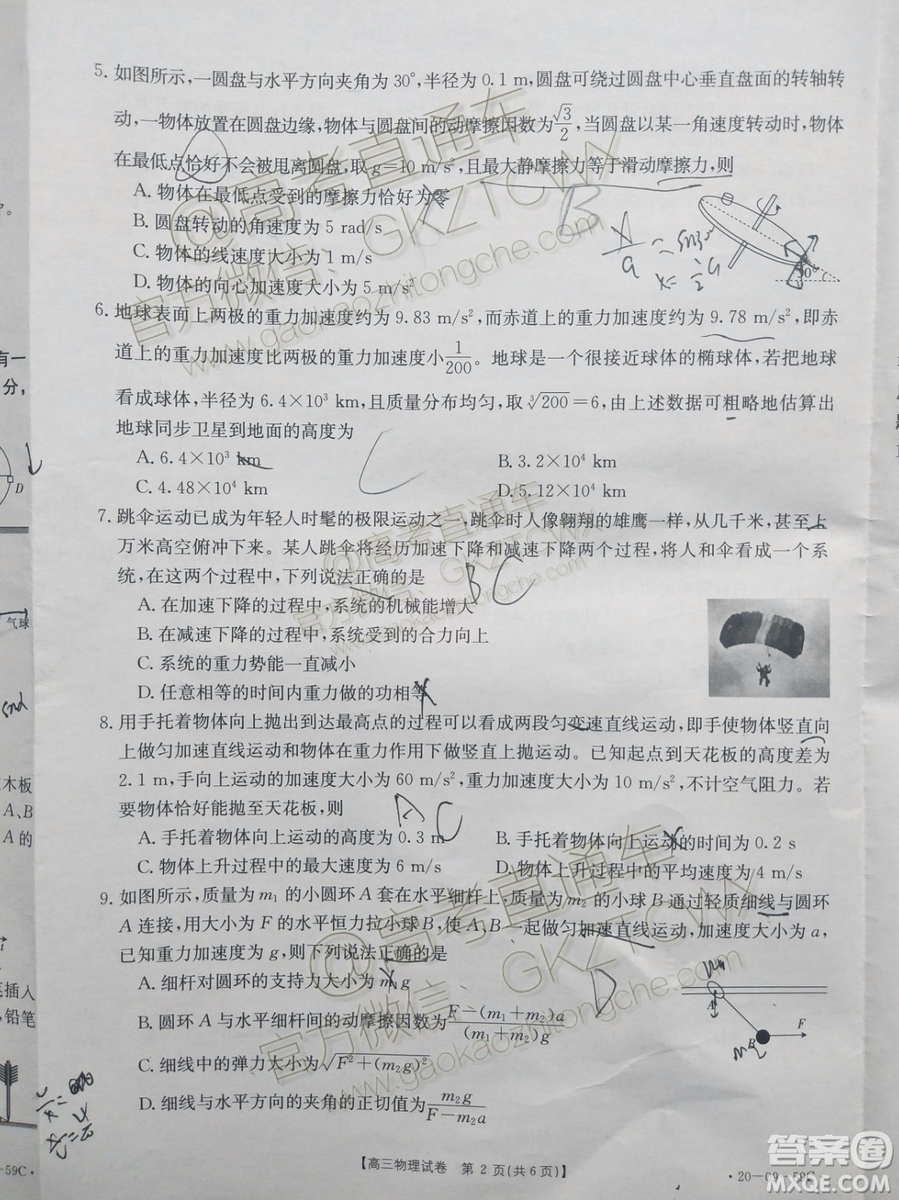 5. 如图所示，一圆盘与水平方向夹角为30°，半径为0.1 m，圆盘可绕过圆盘中心垂直盘面的转轴转
动，一物体放置在圆盘边缘，物体与圆盘间的动摩擦因数为√3/2，当圆盘以某一角速度转动时，物体
在最低点恰好不会被甩离圆盘，取g=10 m/s²，且最大静摩擦力等于滑动摩擦力，则
A. 物体在最低点受到的摩擦力恰好为零
B. 圆盘转动的角速度为5 rad/s
C. 物体的线速度大小为1 m/s
D. 物体的向心加速度大小为5 m/s²
B
30°
6. 地球表面上两极的重力加速度约为9.83 m/s²，而赤道上的重力加速度约为9.78 m/s²，即赤
道上的重力加速度比两极的重力加速度小1/200。地球是一个很接近球体的椭球体，若把地球
看成球体，半径为6.4×10³ km，且质量分布均匀，取∛200=6，由上述数据可粗略地估算出
地球同步卫星到地面的高度为
A. 6.4×10³ km
B. 3.2×10⁴ km
C. 4.48×10⁴ km
D. 5.12×10⁴ km
C
7. 跳伞运动已成为年轻人时髦的极限运动之一，跳伞时人像翱翔的雄鹰一样，从几千米，甚至上
万米高空俯冲下来。某人跳伞将经历加速下降和减速下降两个过程，将人和伞看成一个系
统，在这两个过程中，下列说法正确的是
BC
A. 在加速下降的过程中，系统的机械能增大
B. 在减速下降的过程中，系统受到的合力向上
C. 系统的重力势能一直减小
D. 任意相等的时间内重力做的功相等
8. 用手托着物体向上抛出到达最高点的过程可以看成两段匀变速直线运动，即手使物体竖直向
上做匀加速直线运动和物体在重力作用下做竖直上抛运动。已知起点到天花板的高度差为
2.1 m，手向上运动的加速度大小为60 m/s²，重力加速度大小为10 m/s²，不计空气阻力。若
要物体恰好能抛至天花板，则
AC
A. 手托着物体向上运动的高度为0.3 m
B. 手托着物体向上运动的时间为0.2 s
C. 物体上升过程中的最大速度为6 m/s
D. 物体上升过程中的平均速度为4 m/s
9. 如图所示，质量为m₁的小圆环A套在水平细杆上，质量为m₂的小球B通过轻质细线与圆环
A连接，用大小为F的水平恒力拉小球B，使A、B一起做匀加速直线运动，加速度大小为a，
已知重力加速度为g，则下列说法正确的是
A. 细杆对圆环的支持力大小为m₁g
B. 圆环A与水平细杆间的动摩擦因数为(F−(m₁+m₂)a)/((m₁+m₂)g)
C. 细线中的弹力大小为√(F²+(m₂g)²)
D. 细线与水平方向的夹角的正切值为m₂g/(F−m₂a)
D
A
B
F
m₂
【高三物理试卷 第2页(共6页)】
·20-09-59C·
-59C·
有一
分，
D
气球
木板
A、B
A的
插入
铅笔
@高考直通车
官方微信：GKZTCWX
www.gaokaozhitongche.com
@高考直通车
官方微信：GKZTCWX
www.gaokaozhitongche.com
@高考直通车
官方微信：GKZTCWX
www.gaokaozhitongche.com
答案圈
MXQE.COM